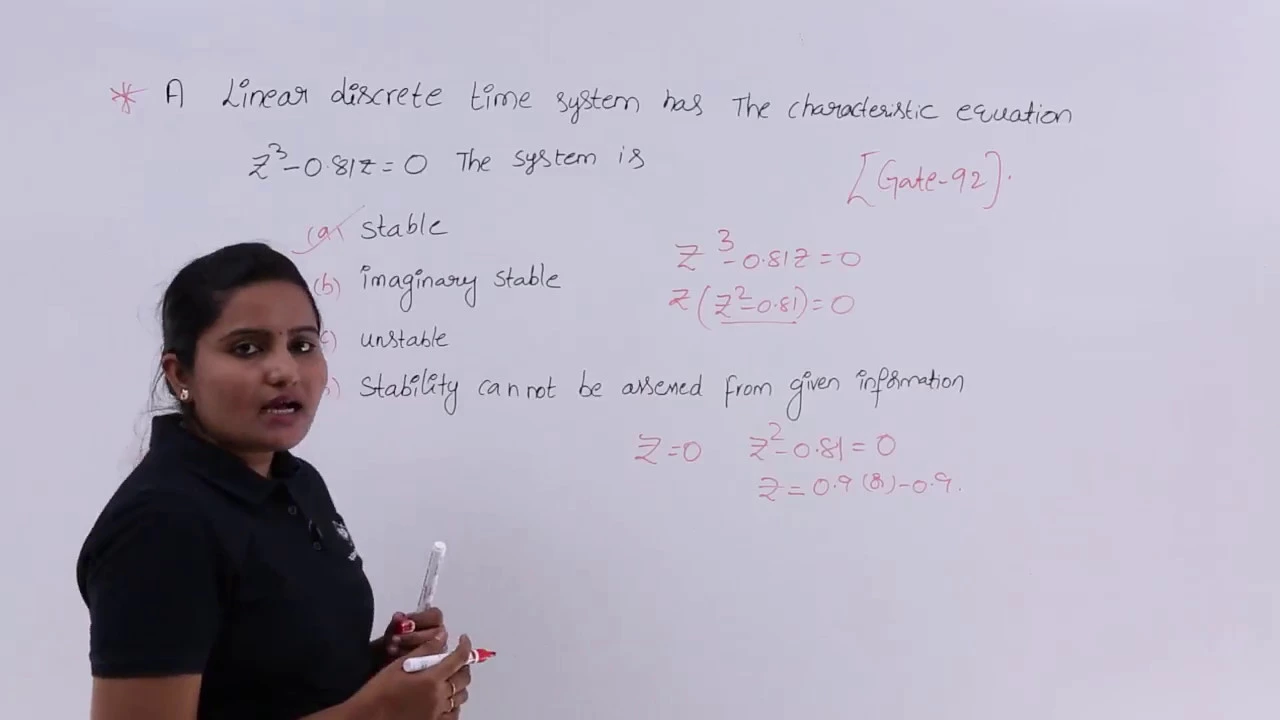 * A Linear discrete time system has The characteristic equation
z³-0.81z=0 The system is
[Gate-92].
(a) stable
(b) imaginary stable
(c) unstable
) Stability can not be assessed from given information
z³-0.81z=0
z(z²-0.81)=0
z=0 z²-0.81=0
z=0.9 (or) -0.9.